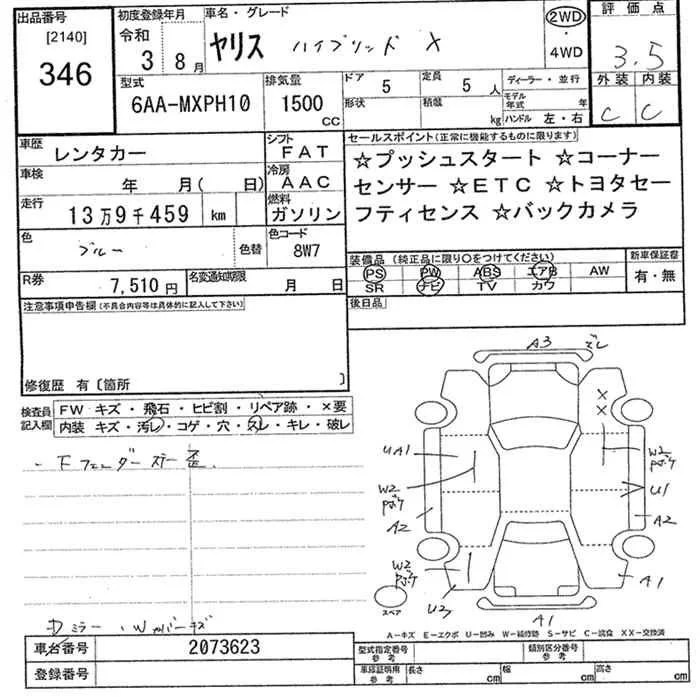 出品番号 [2140] 346
初度登録年月 令和 3 8月
車名・グレード ヤリス ハイブリッド X
2WD ・ 4WD
評価点 3.5
外装 内装 C C
型式 6AA-MXPH10
排気量 1500 CC
ドア 5
形状
定員 5 人
積載 kg
ディーラー・並行
モデル年式 年
ハンドル 左・右
車歴 レンタカー
シフト FAT
車検 年 月( 日)
冷房 AAC
走行 13万9千459 km
燃料 ガソリン
色 ブルー 色替
色コード 8W7
R券 7,510円
名変通知期限 月 日
セールスポイント(正常に機能するものに限ります)
☆プッシュスタート ☆コーナー
センサー ☆ETC ☆トヨタセー
フティセンス ☆バックカメラ
装備品 (純正品に限り〇をつけてください)
PS PW ABS エアB AW
SR ナビ TV カワ
新車保証書 有・無
後日品
注意事項申告欄(不具合内容等は具体的に記入して下さい)
修復歴 有〔箇所 〕
検査員記入欄
FW キズ・飛石・ヒビ割・リペア跡・×要
内装 キズ・汚レ・コゲ・穴・スレ・キレ・破レ
・Fフェンダーステー歪
ミラー ・Wカバーキズ
A3 ズレ
× ×
UA1
W2 Pボケ
W2 Pボケ
U1
A2
A2
W2 Pボケ
U2
A1
A1
スペア
A-キズ E-エクボ U-凹み W-補修跡 S-サビ C-腐食 XX-交換済
車台番号 2073623
登録番号
型式指定番号 参考
類別区分番号 参考
車庫証明用 参考
長さ cm 幅 cm 高さ cm